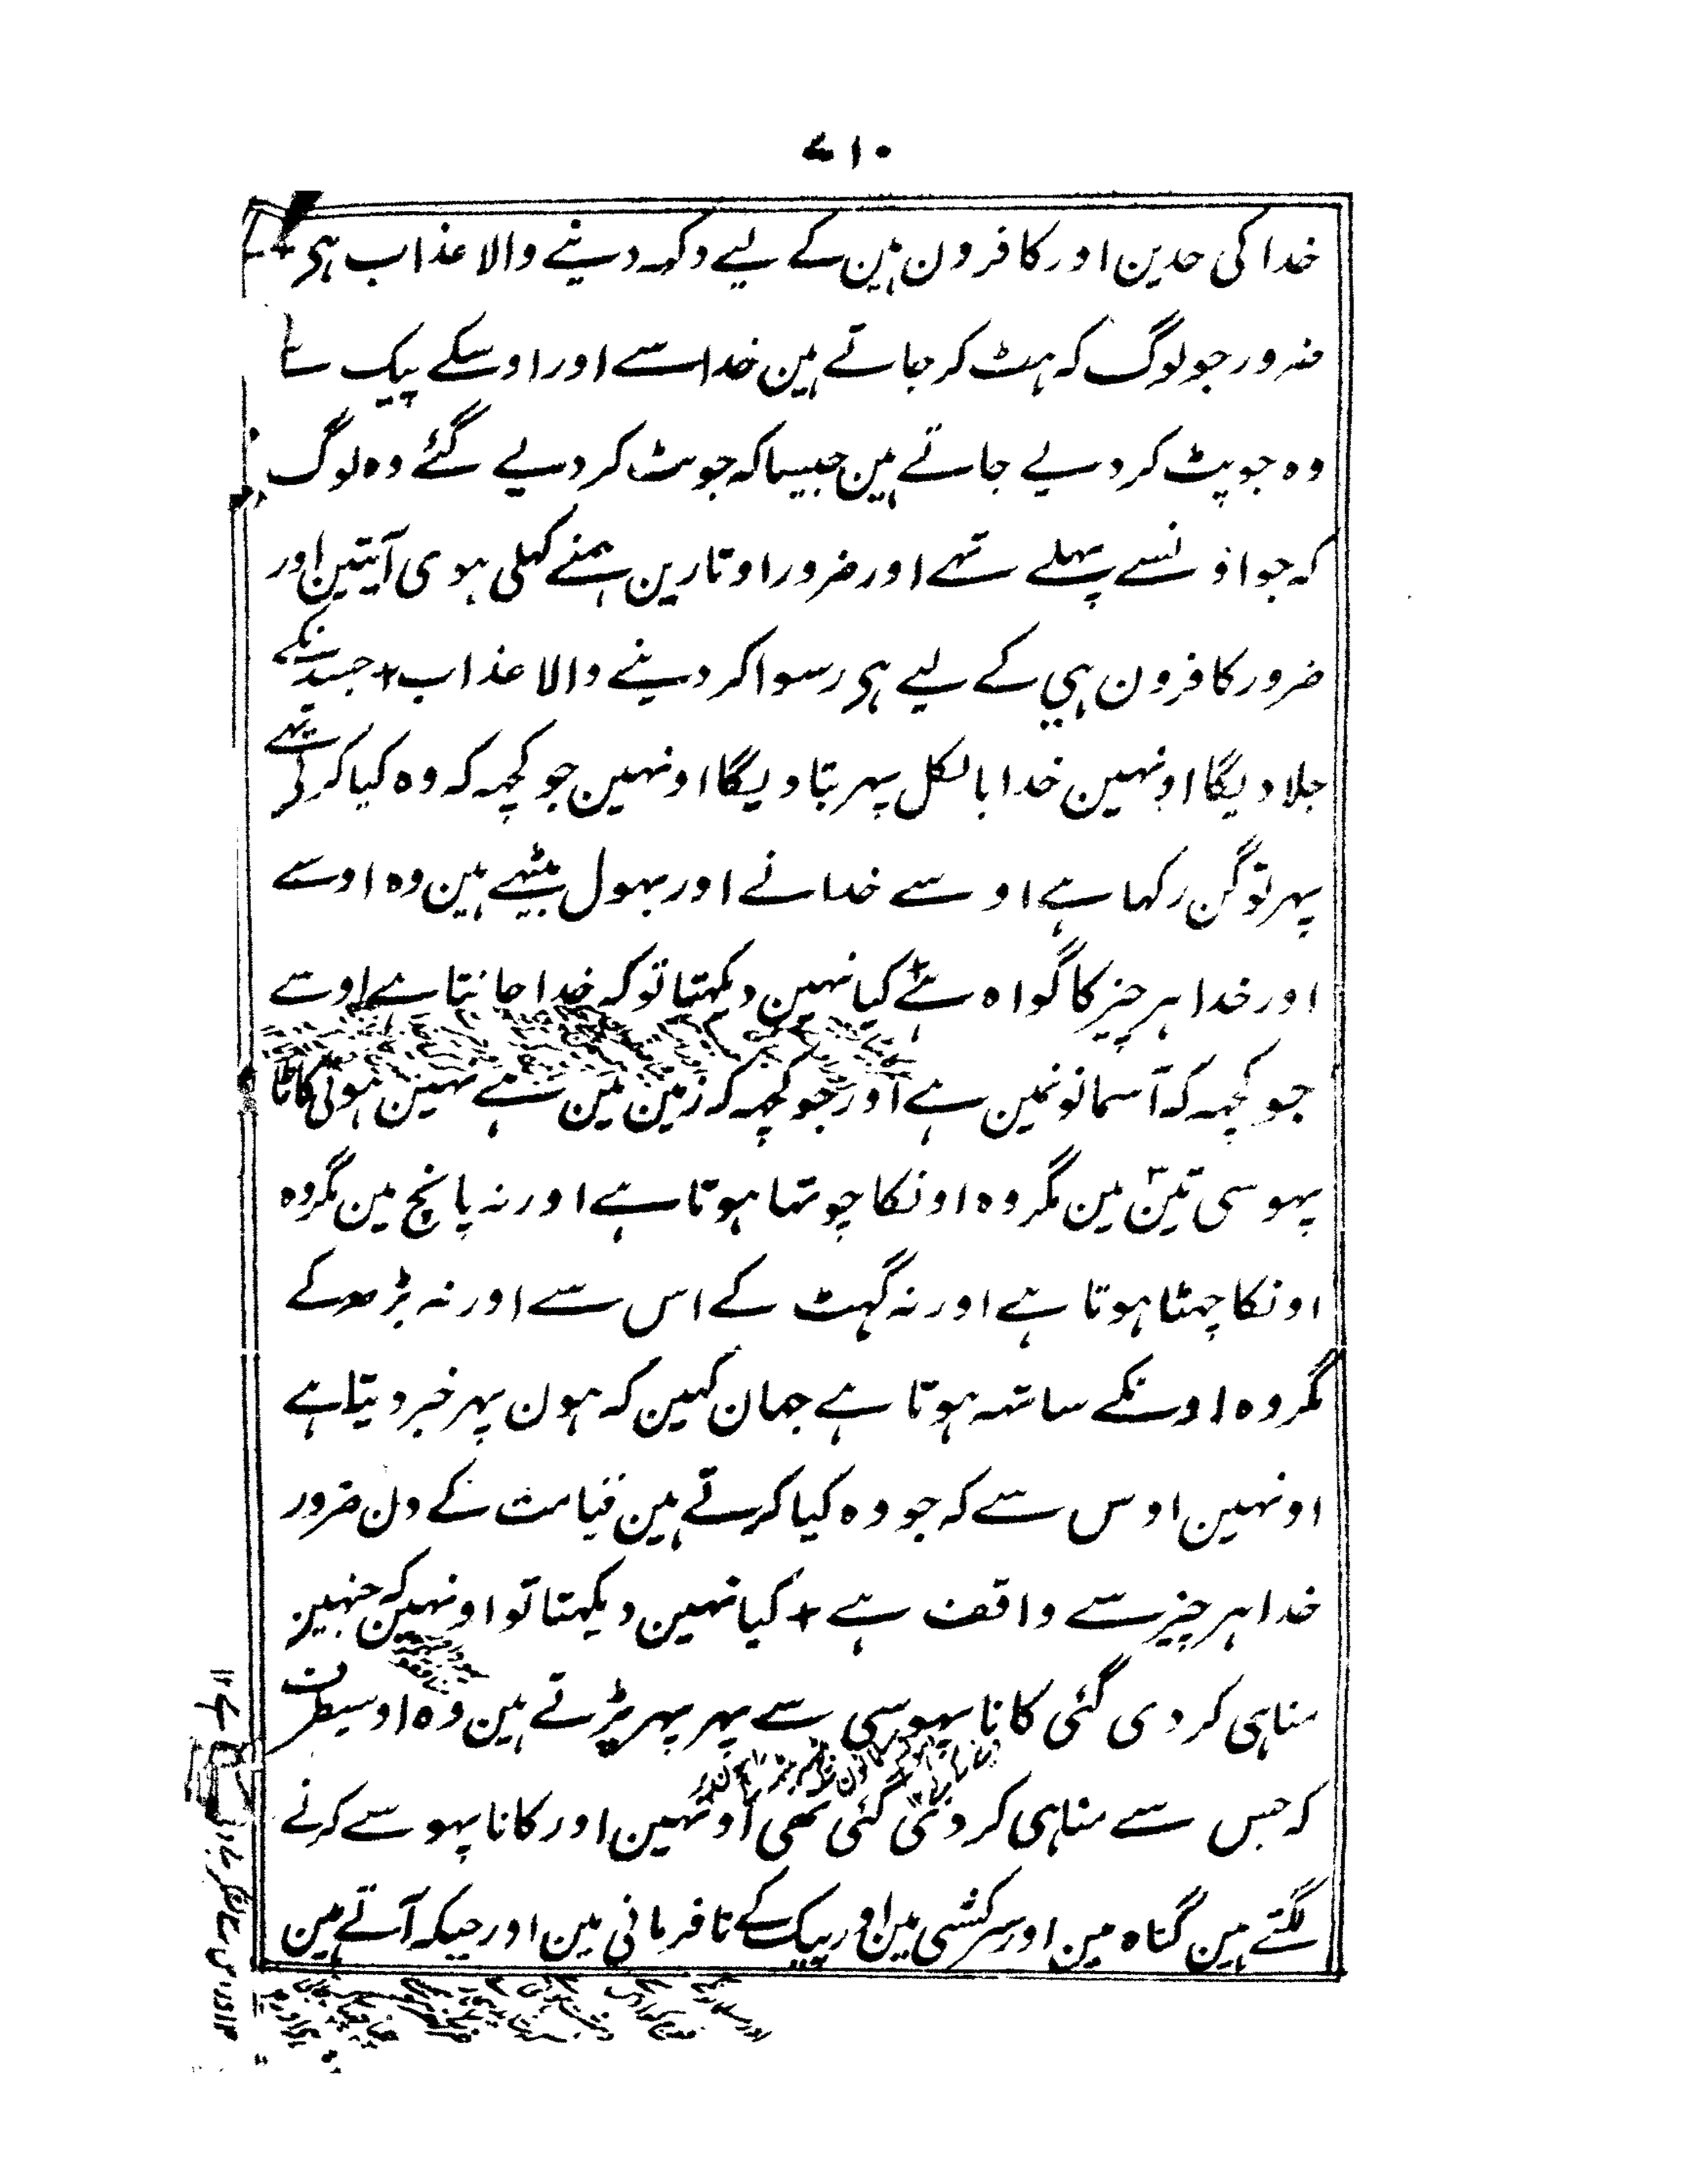 ۷۱۰
خدا کی حدین اور کافرون ہین کے لیے دکہہ دینے والا عذاب ہی +
ضرور جو لوگ کہ ہٹ کر جاتے ہین خدا سے اور اوسکے پیک سے
وہ چوپٹ کر دیے جاتے ہین جیسا کہ چوپٹ کر دیے گئے وہ لوگ
کہ جو اونسے پہلے تہے اور ضرور اوتارین ہمنے کہلی ہوی آیتین اور
ضرور کافرون ہی کے لیے ہی رسوا کر دینے والا عذاب + جسدنکے
جلا دیگا اونہین خدا بالکل پہر بتا دیگا اونہین جو کچہہ کہ وہ کیا کرتے تہے
پہر تو گن رکہا ہے اوسے خدا نے اور بہول بیٹہے ہین وہ اوسے
اور خدا ہر چیز کا گواہ ہے + کیا نہین دیکہتا تو کہ خدا جانتا ہے اوسے
جو کچہہ کہ آسمانونمین ہے اور جو کچہہ کہ زمین مین ہے نہین ہوتی کانا
پہوسی تین مین مگر وہ اونکا چوتہا ہوتا ہے اور نہ پانچ مین مگر وہ
اونکا چہٹا ہوتا ہے اور نہ گہٹ کے اس سے اور نہ بڑھ کے
مگر وہ اونکے ساتہہ ہوتا ہے جہان کہین کہ ہون پہر خبر دیتا ہے
اونہین اوس سے کہ جو وہ کیا کرتے ہین قیامت کے دن ضرور
خدا ہر چیز سے واقف ہے + کیا نہین دیکہتا تو اونہین کہ جنہین
مناہی کر دی گئی کانا پہوسی سے پہر پہر پڑتے ہین وہ اوسیطرف
کہ جس سے مناہی کر دی گئی تھی اونہین اور کانا پہوسے کرنے
لگتے ہین گناہ مین اور سرکشی مین اور پیک کے نافرمانی مین اور جبکہ آتے ہین